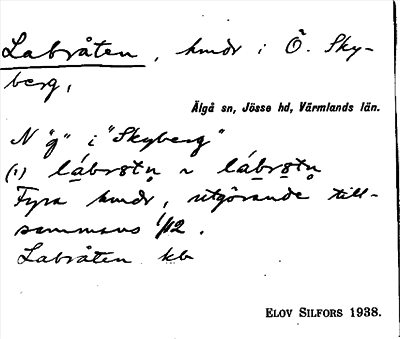 Labråten, hmdr i Ö. Sky-
berg,
Älgå sn, Jösse hd, Värmlands län.
N "g" i "Skyberg"
(1) lábrotn ~ lábrotn
Fyra hmdr, utgörande till-
sammans 1/12.
Labråten kb
ELOV SILFORS 1938.